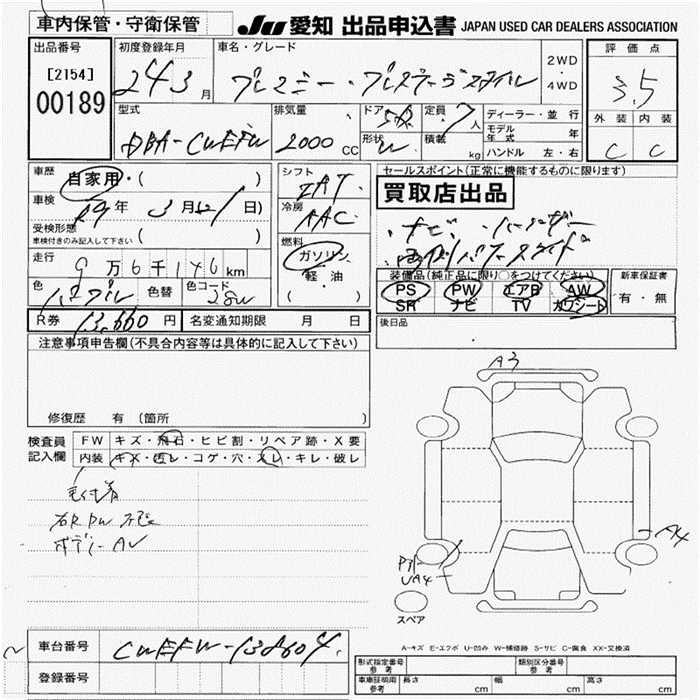 車内保管・守衛保管
JU 愛知 出品申込書 JAPAN USED CAR DEALERS ASSOCIATION
出品番号 初度登録年月 車名・グレード 2WD・4WD 評価点
[2154]
00189 24 3月 プレマシー・ 3.5
型式 排気量 ドア 定員 ディーラー・並行 外装 内装
DBA-CWEFW 2000 CC 5D 7人 モデル年式 年 C C
形状 W 積載 kg ハンドル 左・右
車歴 自家用・( )
シフト
セールスポイント(正常に機能するものに限ります)
買取店出品
車検 年 3月 日)
冷房 AAC
ナビ・
受検形態
車検付きのみ記入して下さい ( )
燃料 ガソリン 軽・油 ( )
走行 9万6千146km
装備品(純正品に限り○をつけてください) 新車保証書
PS PW エアB AW 有・無
SR ナビ TV カワシート
色 色替 色コード
R券 13,660円 名変通知期限 月 日
後日品
注意事項申告欄(不具合内容等は具体的に記入して下さい)
修復歴 有 (箇所 )
検査員記入欄
FW キズ・飛石・ヒビ割・リペア跡・X要
内装 コゲ・穴・スレ・キレ・破レ
A3
A4
UA4
スペア
A-キズ E-エクボ U-凹み W-補修跡 S-サビ C-腐食 XX-交換済
車台番号 CWEFW-138604
登録番号
形式指定番号 参考 類別区分番号 参考
車庫証明用 参考 長さ cm 幅 cm 高さ cm